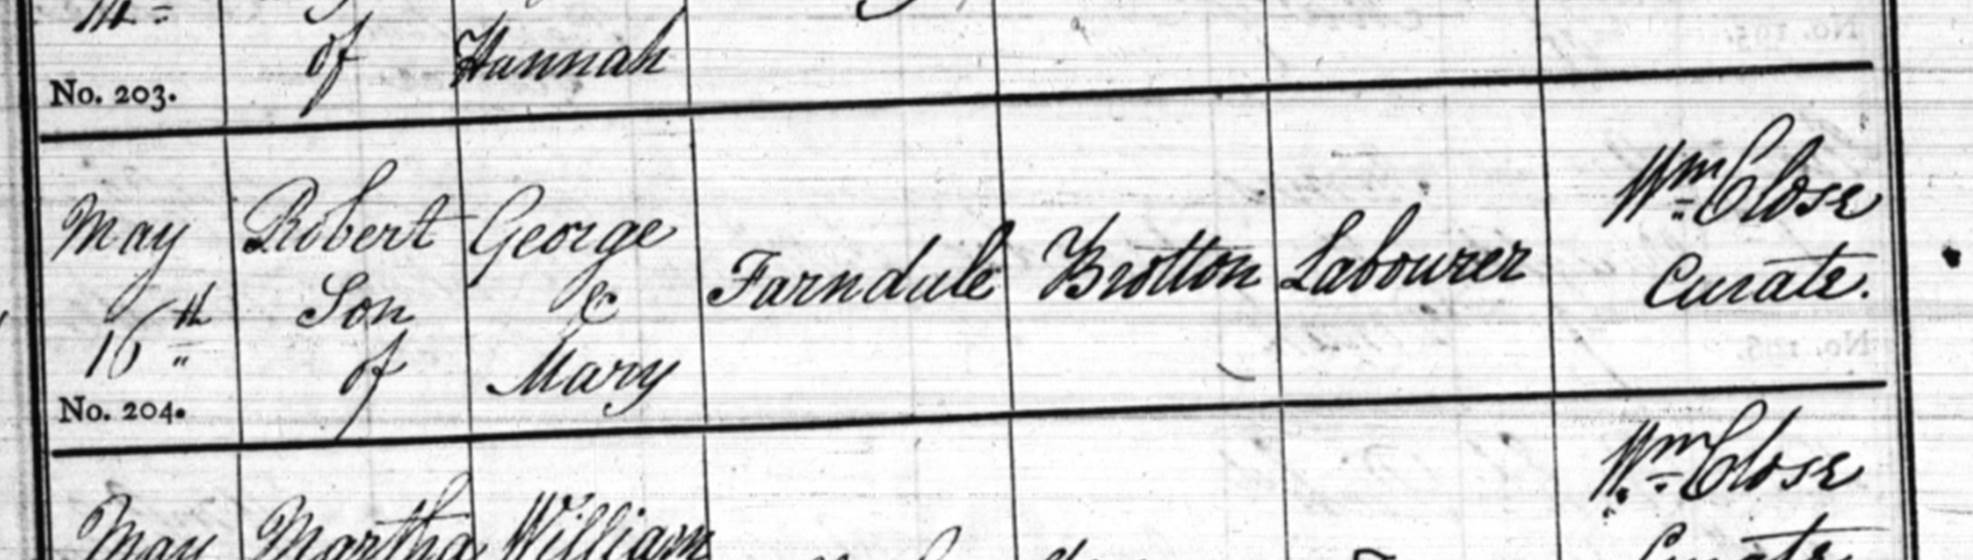 of Hannah
No. 203.
May Robert George Wm Close
16th Son & Farndale Brotton Labourer Curate.
of Mary
No. 204.
Wm Close
May Martha William
Curate